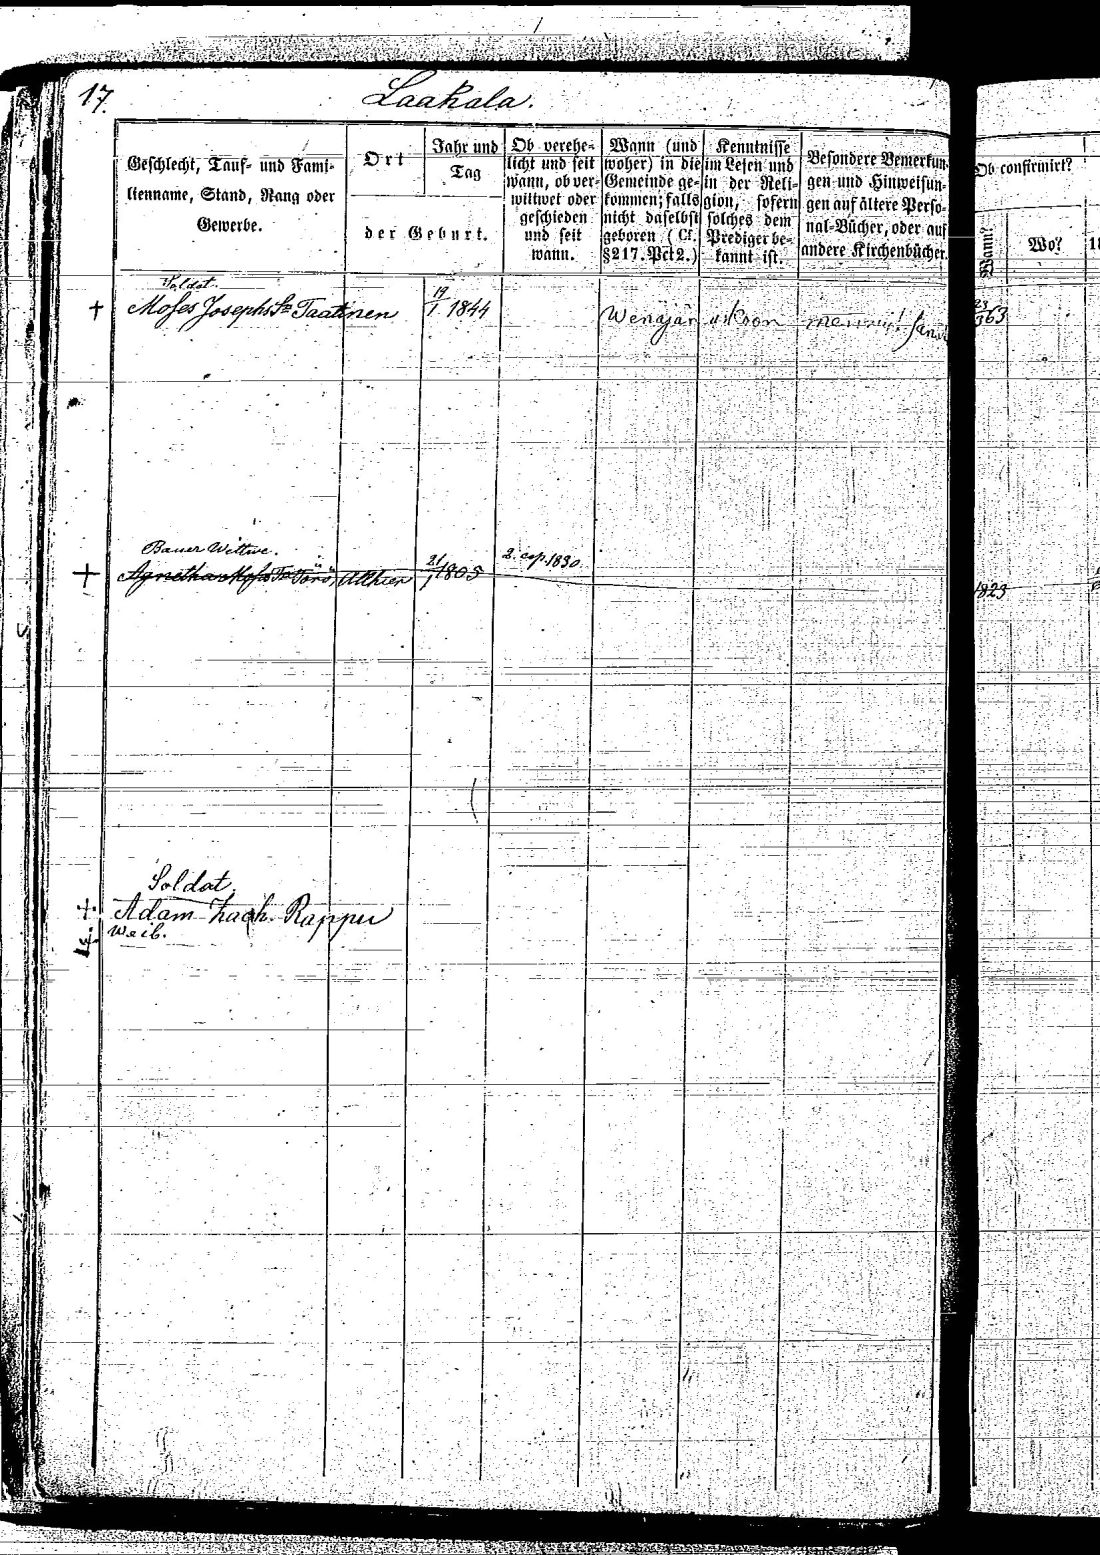 17.
Laakala.
Geschlecht, Tauf- und Fami-
lienname, Stand, Rang oder
Gewerbe.
Ort
Jahr und
Tag
der Geburt.
Ob verehe-
licht und seit
wann, ob ver-
wittwet oder
geschieden
und seit
wann.
Wann (und
woher) in die
Gemeinde ge-
kommen; falls
nicht daselbst
geboren (Cf.
§217. Pct 2.)
Kenntnisse
im Lesen und
in der Reli-
gion, sofern
solches dem
Prediger be-
kannt ist.
Besondere Bemerkun-
gen und Hinweisun-
gen auf ältere Perso-
nal-Bücher, oder auf
andere Kirchenbücher.
Ob confirmirt?
Wann?
Wo?
Soldat.
+ Moses Josephs Sn Taattinen 19/1 1844 Wenäjän uskoon
363
Bauer Wittwe.
+ Agnetha Mosis Törö, 21/1 1805 2. cop. 1830
1823
Soldat.
+ Adam Zach. Rappu
Weib.